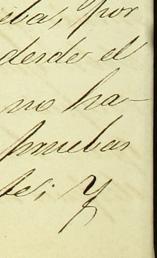 eba, por
desde el
no ha-
pruebas
te; y